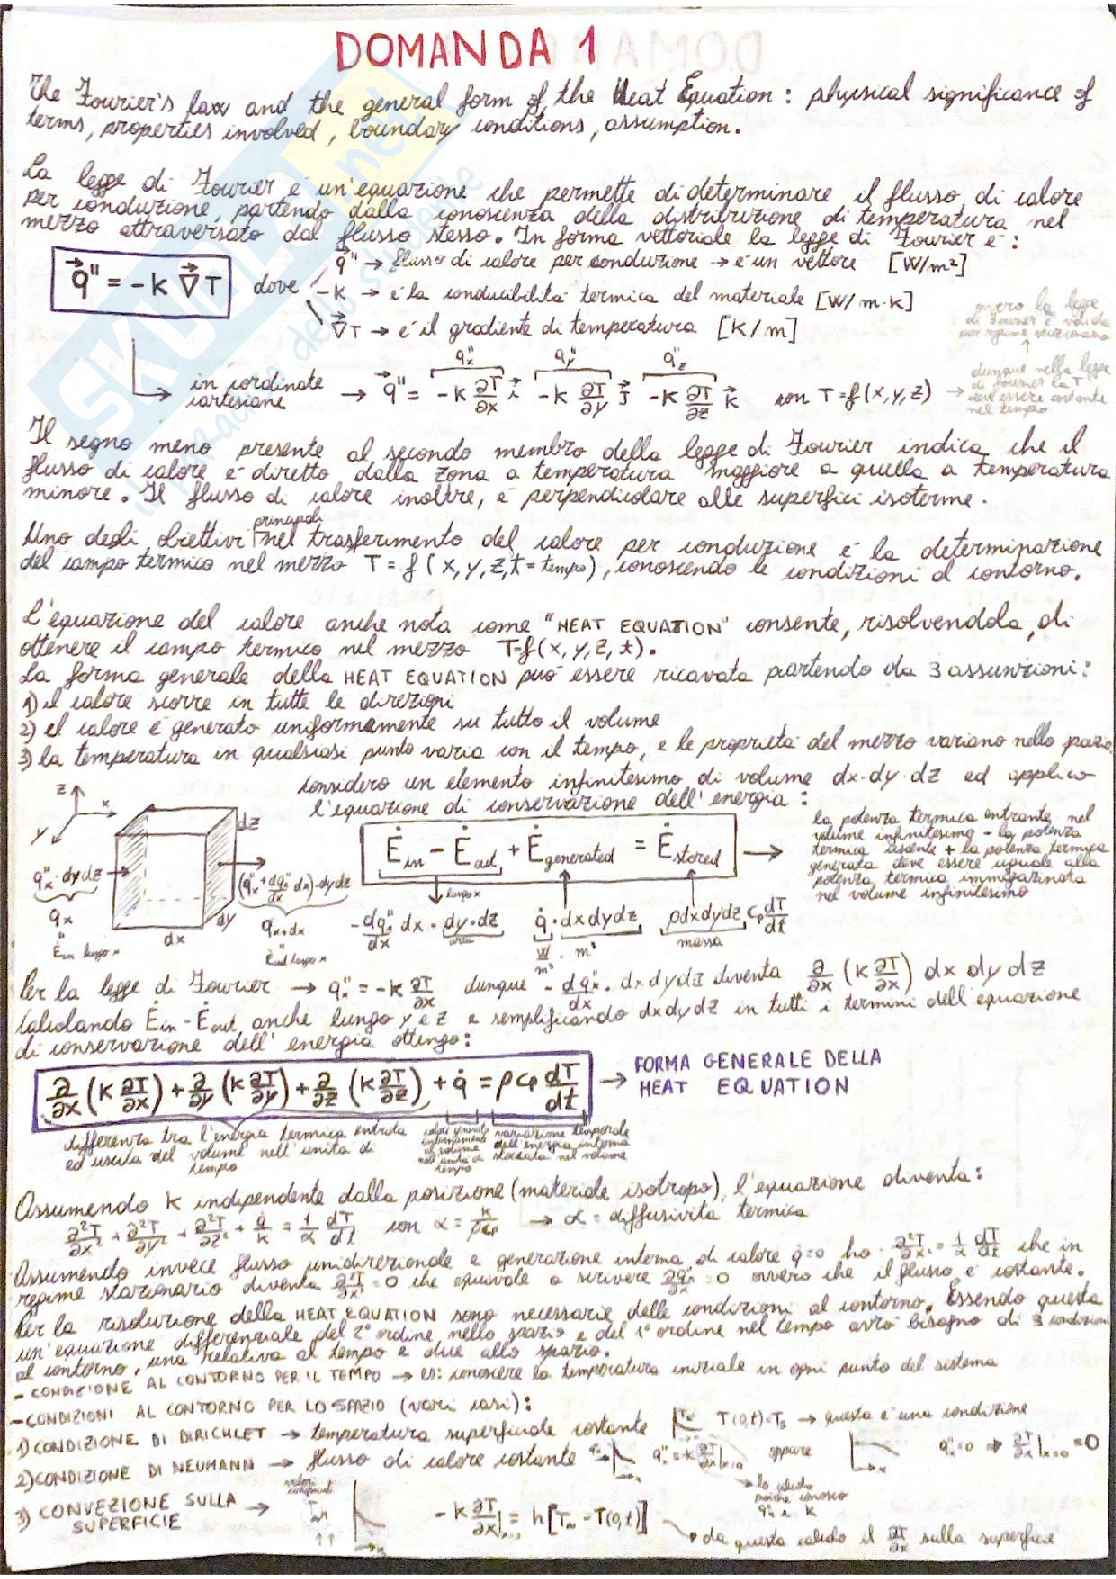 DOMANDA 1
The Fourier's law and the general form of the Heat Equation: physical significance of
terms, properties involved, boundary conditions, assumption.
La legge di Fourier è un'equazione che permette di determinare il flusso di calore
per conduzione, partendo dalla conoscenza della distribuzione di temperatura nel
mezzo attraversato dal flusso stesso. In forma vettoriale la legge di Fourier è:
q⃗" = -k ∇⃗T dove q⃗" → flusso di calore per conduzione → è un vettore [W/m²]
-k → è la conducibilità termica del materiale [W/m·k]
∇⃗T → è il gradiente di temperatura [K/m]
ovvero la legge di Fourier è valida per regime stazionario
dunque nella legge di Fourier la T deve essere costante nel tempo
q"x q"y q"z
in cordinate cartesiane → q⃗" = -k ∂T/∂x i⃗ -k ∂T/∂y j⃗ -k ∂T/∂z k⃗ con T=f(x,y,z) →
Il segno meno presente al secondo membro della legge di Fourier indica che il
flusso di calore è diretto dalla zona a temperatura maggiore a quella a temperatura
minore. Il flusso di calore inoltre, è perpendicolare alle superfici isoterme.
Uno degli obiettivi principali nel trasferimento del calore per conduzione è la determinazione
del campo termico nel mezzo T=f(x,y,z,t=tempo), conoscendo le condizioni al contorno.
L'equazione del calore anche nota come "HEAT EQUATION" consente, risolvendola, di
ottenere il campo termico nel mezzo T=f(x,y,z,t).
La forma generale della HEAT EQUATION può essere ricavata partendo da 3 assunzioni:
1) il calore scorre in tutte le direzioni
2) il calore è generato uniformemente su tutto il volume
3) la temperatura in qualsiasi punto varia con il tempo, e le proprietà del mezzo variano nello spazio
considero un elemento infinitesimo di volume dx·dy·dz ed applico
l'equazione di conservazione dell'energia:
z x y
Ėin - Ėout + Ėgenerated = Ėstored →
la potenza termica entrante nel
volume infinitesimo - la potenza
termica uscente + la potenza termica
generata deve essere uguale alla
potenza termica immagazzinata
nel volume infinitesimo
q"x·dydz
qx
Ėin lungo x
dz dy dx
(q"x+dq"x/dx dx)·dydz
qx+dx
Ėout lungo x
lungo x
-dq"x/dx dx·dy·dz
area
q̇·dxdydz
W/m³ m³
ρdxdydz cp dT/dt
massa
Per la legge di Fourier → q"x = -k ∂T/∂x dunque -dq"x/dx·dxdydz diventa ∂/∂x (k ∂T/∂x) dx dy dz
Calcolando Ėin - Ėout anche lungo y e z e semplificando dxdydz in tutti i termini dell'equazione
di conservazione dell'energia ottengo:
∂/∂x (k ∂T/∂x) + ∂/∂y (k ∂T/∂y) + ∂/∂z (k ∂T/∂z) + q̇ = ρcp dT/dt → FORMA GENERALE DELLA
HEAT EQUATION
differenza tra l'energia termica entrata
ed uscita del volume nell'unità di
tempo
variazione temporale
dell'energia interna
stoccata nel volume
Assumendo k indipendente dalla posizione (materiale isotropo), l'equazione diventa:
∂²T/∂x² + ∂²T/∂y² + ∂²T/∂z² + q̇/k = 1/α dT/dt con α = k/ρcp → α = diffusività termica
Assumendo invece flusso unidirezionale e generazione interna di calore q̇=0 ho: ∂²T/∂x² = 1/α dT/dt che in
regime stazionario diventa ∂²T/∂x² = 0 che equivale a scrivere ∂q"x/∂x = 0 ovvero che il flusso è costante.
Per la risoluzione della HEAT EQUATION sono necessarie delle condizioni al contorno. Essendo questa
un'equazione differenziale del 2° ordine nello spazio e del 1° ordine nel tempo avrò bisogno di 3 condizioni
al contorno, una relativa al tempo e due allo spazio.
- CONDIZIONE AL CONTORNO PER IL TEMPO → es: conoscere la temperatura iniziale in ogni punto del sistema
- CONDIZIONI AL CONTORNO PER LO SPAZIO (vari casi):
1) CONDIZIONE DI DIRICHLET → temperatura superficiale costante T(0,t)=Ts → questa è una condizione
2) CONDIZIONE DI NEUMANN → flusso di calore costante q"s=-k ∂T/∂x|x=0 oppure q"s=0 ⇒ ∂T/∂x|x=0 = 0
lo calcolo
poiché conosco
q"s e k
3) CONVEZIONE SULLA
SUPERFICIE → T∞,h -k ∂T/∂x|x=0 = h[T∞ - T(0,t)]
→ da questa calcolo il ∂T/∂x sulla superficie